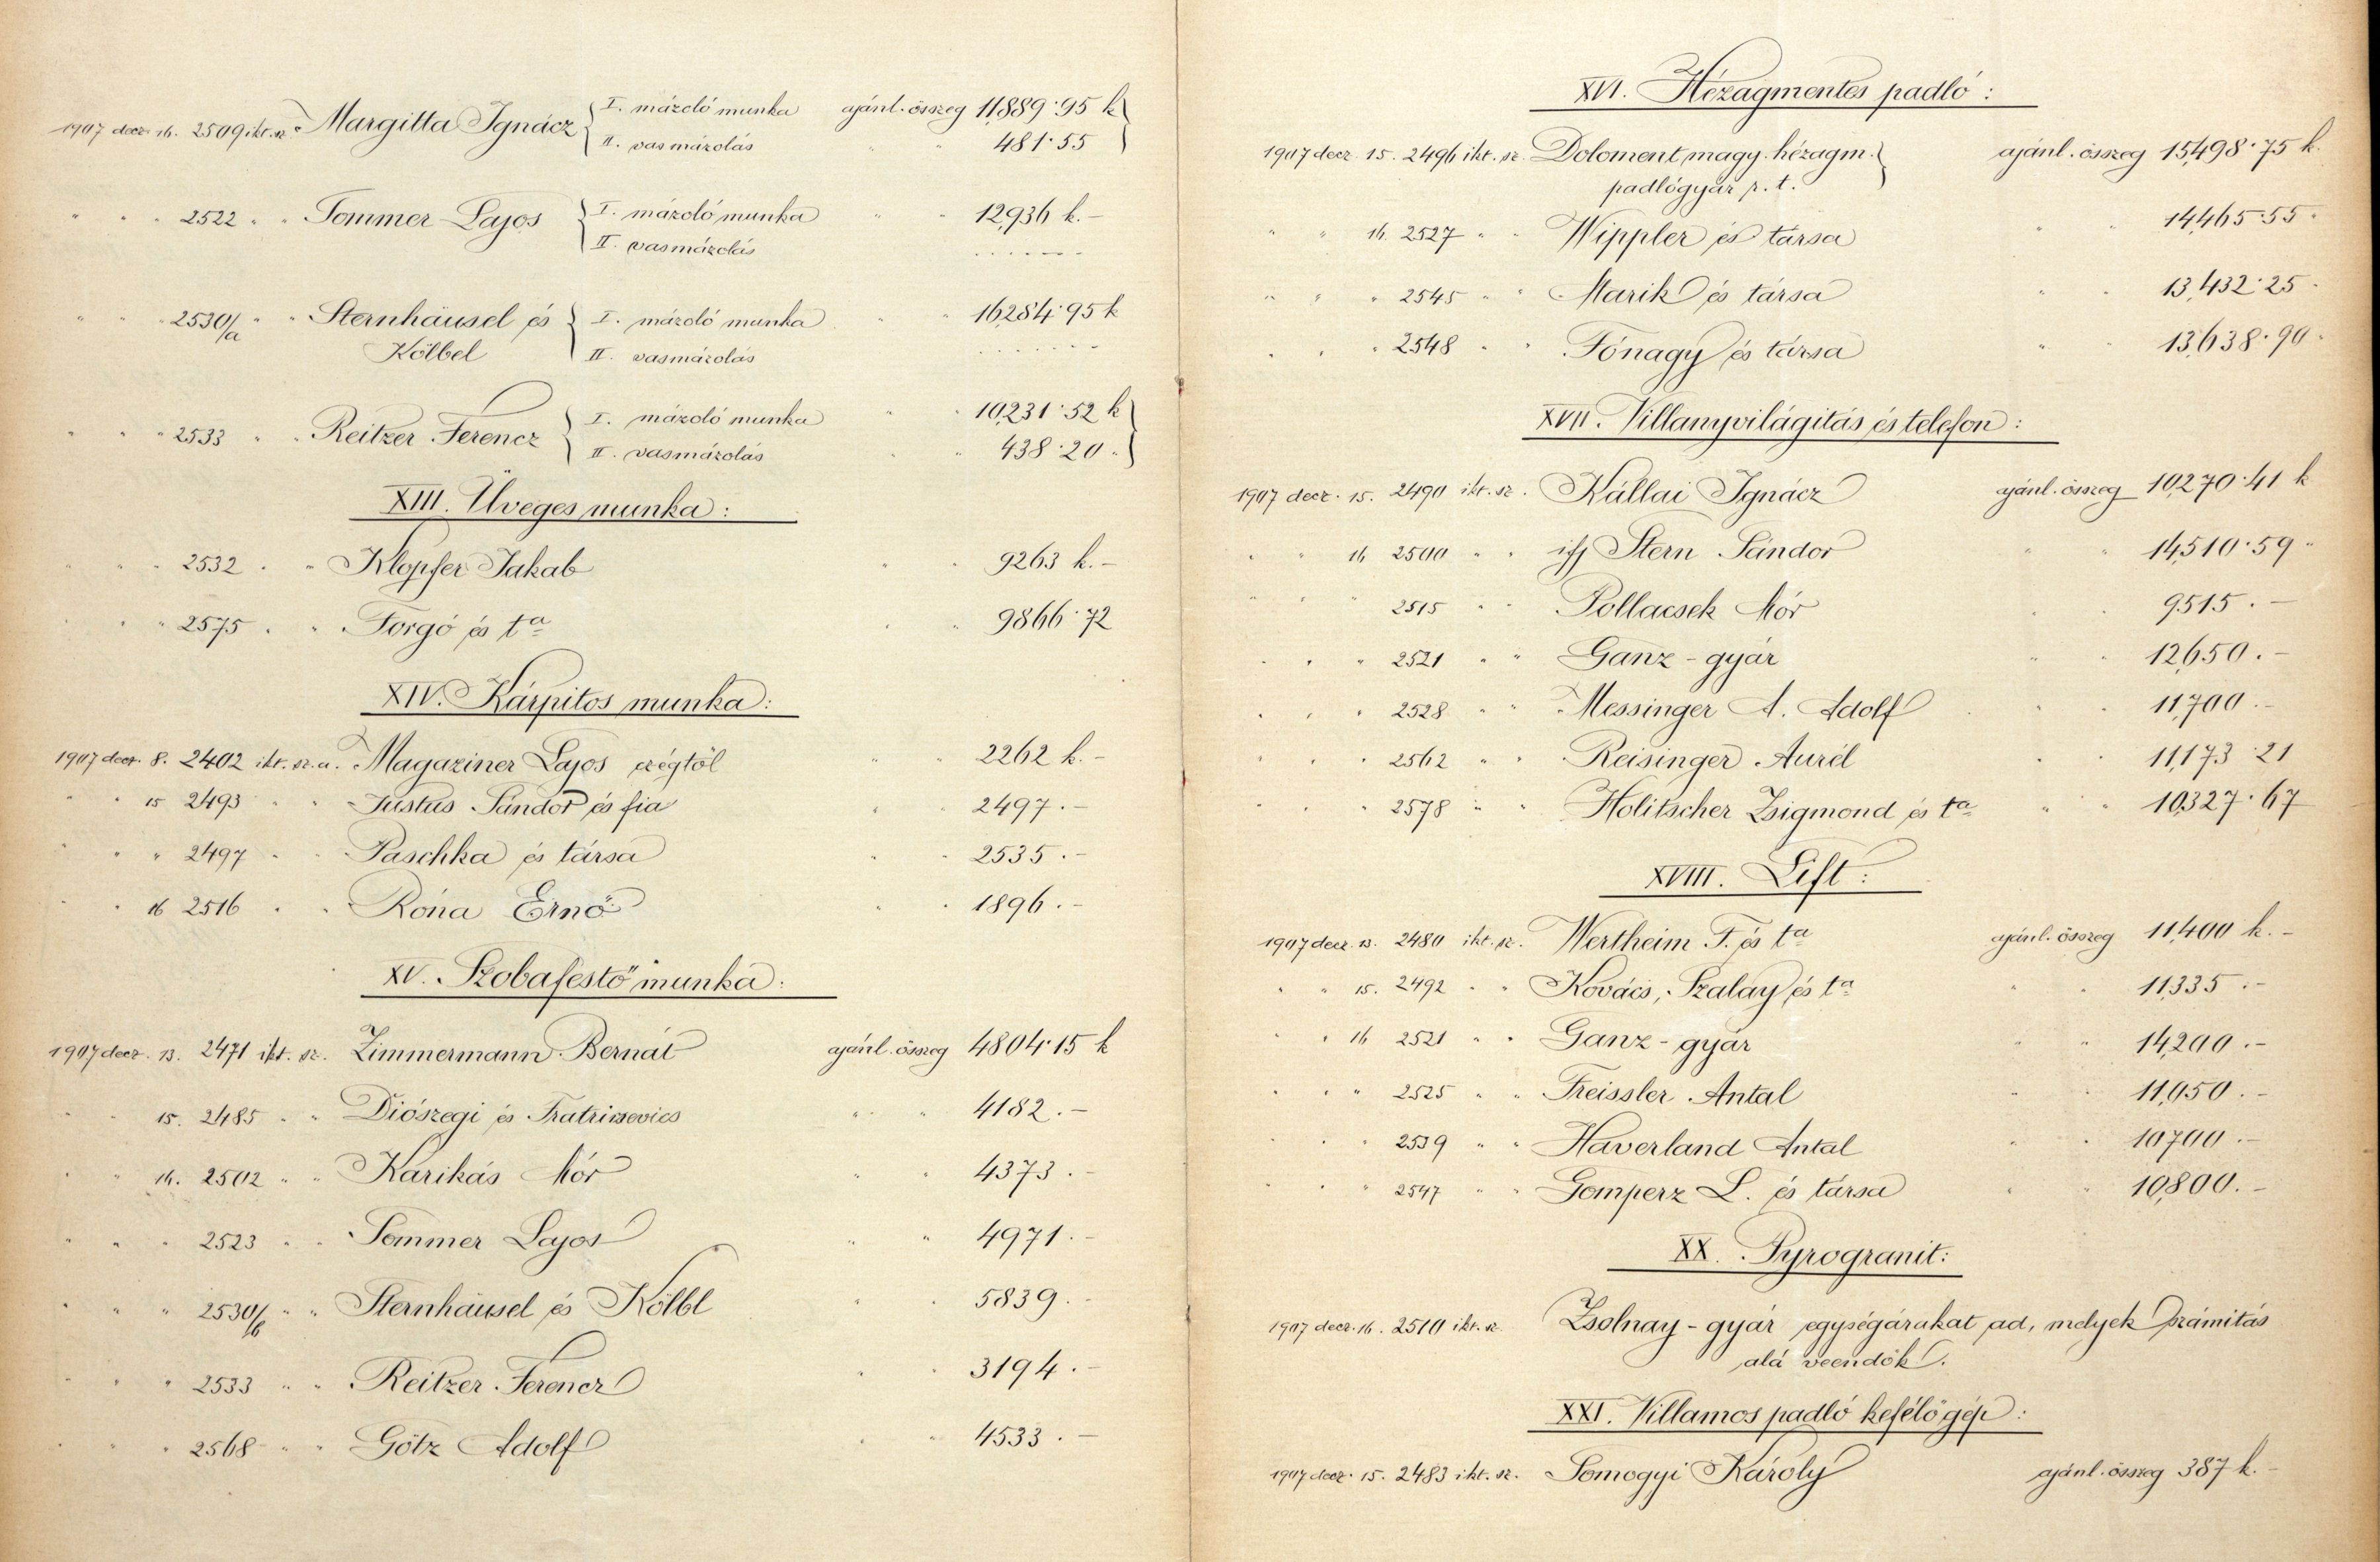 1907 decz. 16. 2509 ikt. sz. Margitta Ignácz { I. mázoló munka ajánl. összeg 11,889·95 k }
II. vasmázolás " " 481·55
" " " 2522 " " Sommer Lajos { I. mázoló munka " " 12,936 k. –
II. vasmázolás . . . . . .
" " " 2530/a " " Sternhäusel és { I. mázoló munka " " 16,284·95 k
Kölbel II. vasmázolás . . . . . .
" " " 2533 " " Reitzer Ferencz { I. mázoló munka " " 10,231·52 k }
II. vasmázolás " " 438·20 "
XIII. Üveges munka:
" " " 2532 " " Klopfer Jakab " " 9263 k. –
" " " 2575 " " Forgó és ta " " 9866·72
XIV. Kárpitos munka:
1907 decz. 8. 2402 ikt. sz. a. Magaziner Lajos czégtől " " 2262 k. –
" " 15 2493 " " Justus Sándor és fia " " 2497. –
" " " 2497 " " Paschka és társa " " 2535. –
" " 16 2516 " " Róna Ernő " " 1896. –
XV. Szobafestő munka:
1907 decz. 13. 2471 ikt. sz. Zimmermann Bernát ajánl. összeg 4804·15 k
" " 15. 2485 " " Diószegi és Fratricsevics " " 4182. –
" " 16. 2502 " " Karikás Mór " " 4373. –
" " " 2523 " " Sommer Lajos " " 4971. –
" " " 2530/b " " Sternhäusel és Kölbl " " 5839. –
" " " 2533 " " Reitzer Ferencz " " 3194. –
" " " 2568 " " Götz Adolf " " 4533. –
XVI. Hézagmentes padló:
1907 decz. 15. 2496 ikt. sz. Doloment magy. hézagm. } ajánl. összeg 15,498·75 k.
padlógyár r. t.
" " 16. 2527 " " Wippler és társa " " 14,465·55 "
" " " 2545 " " Marik és társa " " 13,432·25 "
" " " 2548 " " Fónagy és társa " " 13,638·90 "
XVII. Villanyvilágitás és telefon:
1907 decz. 15. 2490 ikt. sz. Kállai Ignácz ajánl. összeg 10,270·41 k
" " 16 2500 " " ifj Stern Sándor " " 14,510·59 "
" " " 2515 " " Pollacsek Mór " " 9515. –
" " " 2521 " " Ganz-gyár " " 12,650. –
" " " 2528 " " Messinger A. Adolf " " 11,700. –
" " " 2562 " " Reisinger Aurél " " 11,173·21
" " " 2578 " " Holitscher Zsigmond és ta " " 10,327·67
XVIII. Lift:
1907 decz. 13. 2480 ikt. sz. Wertheim F. és ta ajánl. összeg 11,400 k. –
" " 15. 2492 " " Kovács, Szalay és ta " " 11,335. –
" " 16 2521 " " Ganz-gyár " " 14,200. –
" " " 2525 " " Freissler Antal " " 11,050. –
" " " 2539 " " Haverland Antal " " 10,700. –
" " " 2547 " " Gomperz L. és társa " " 10,800. –
XX. Pyrogranit:
1907 decz. 16. 2510 ikt. sz. Zsolnay-gyár egységárakat ad, melyek számitás
alá veendők.
XXI. Villamos padló kefélőgép:
1907 decz. 15. 2483 ikt. sz. Somogyi Károly ajánl. összeg 387 k. –